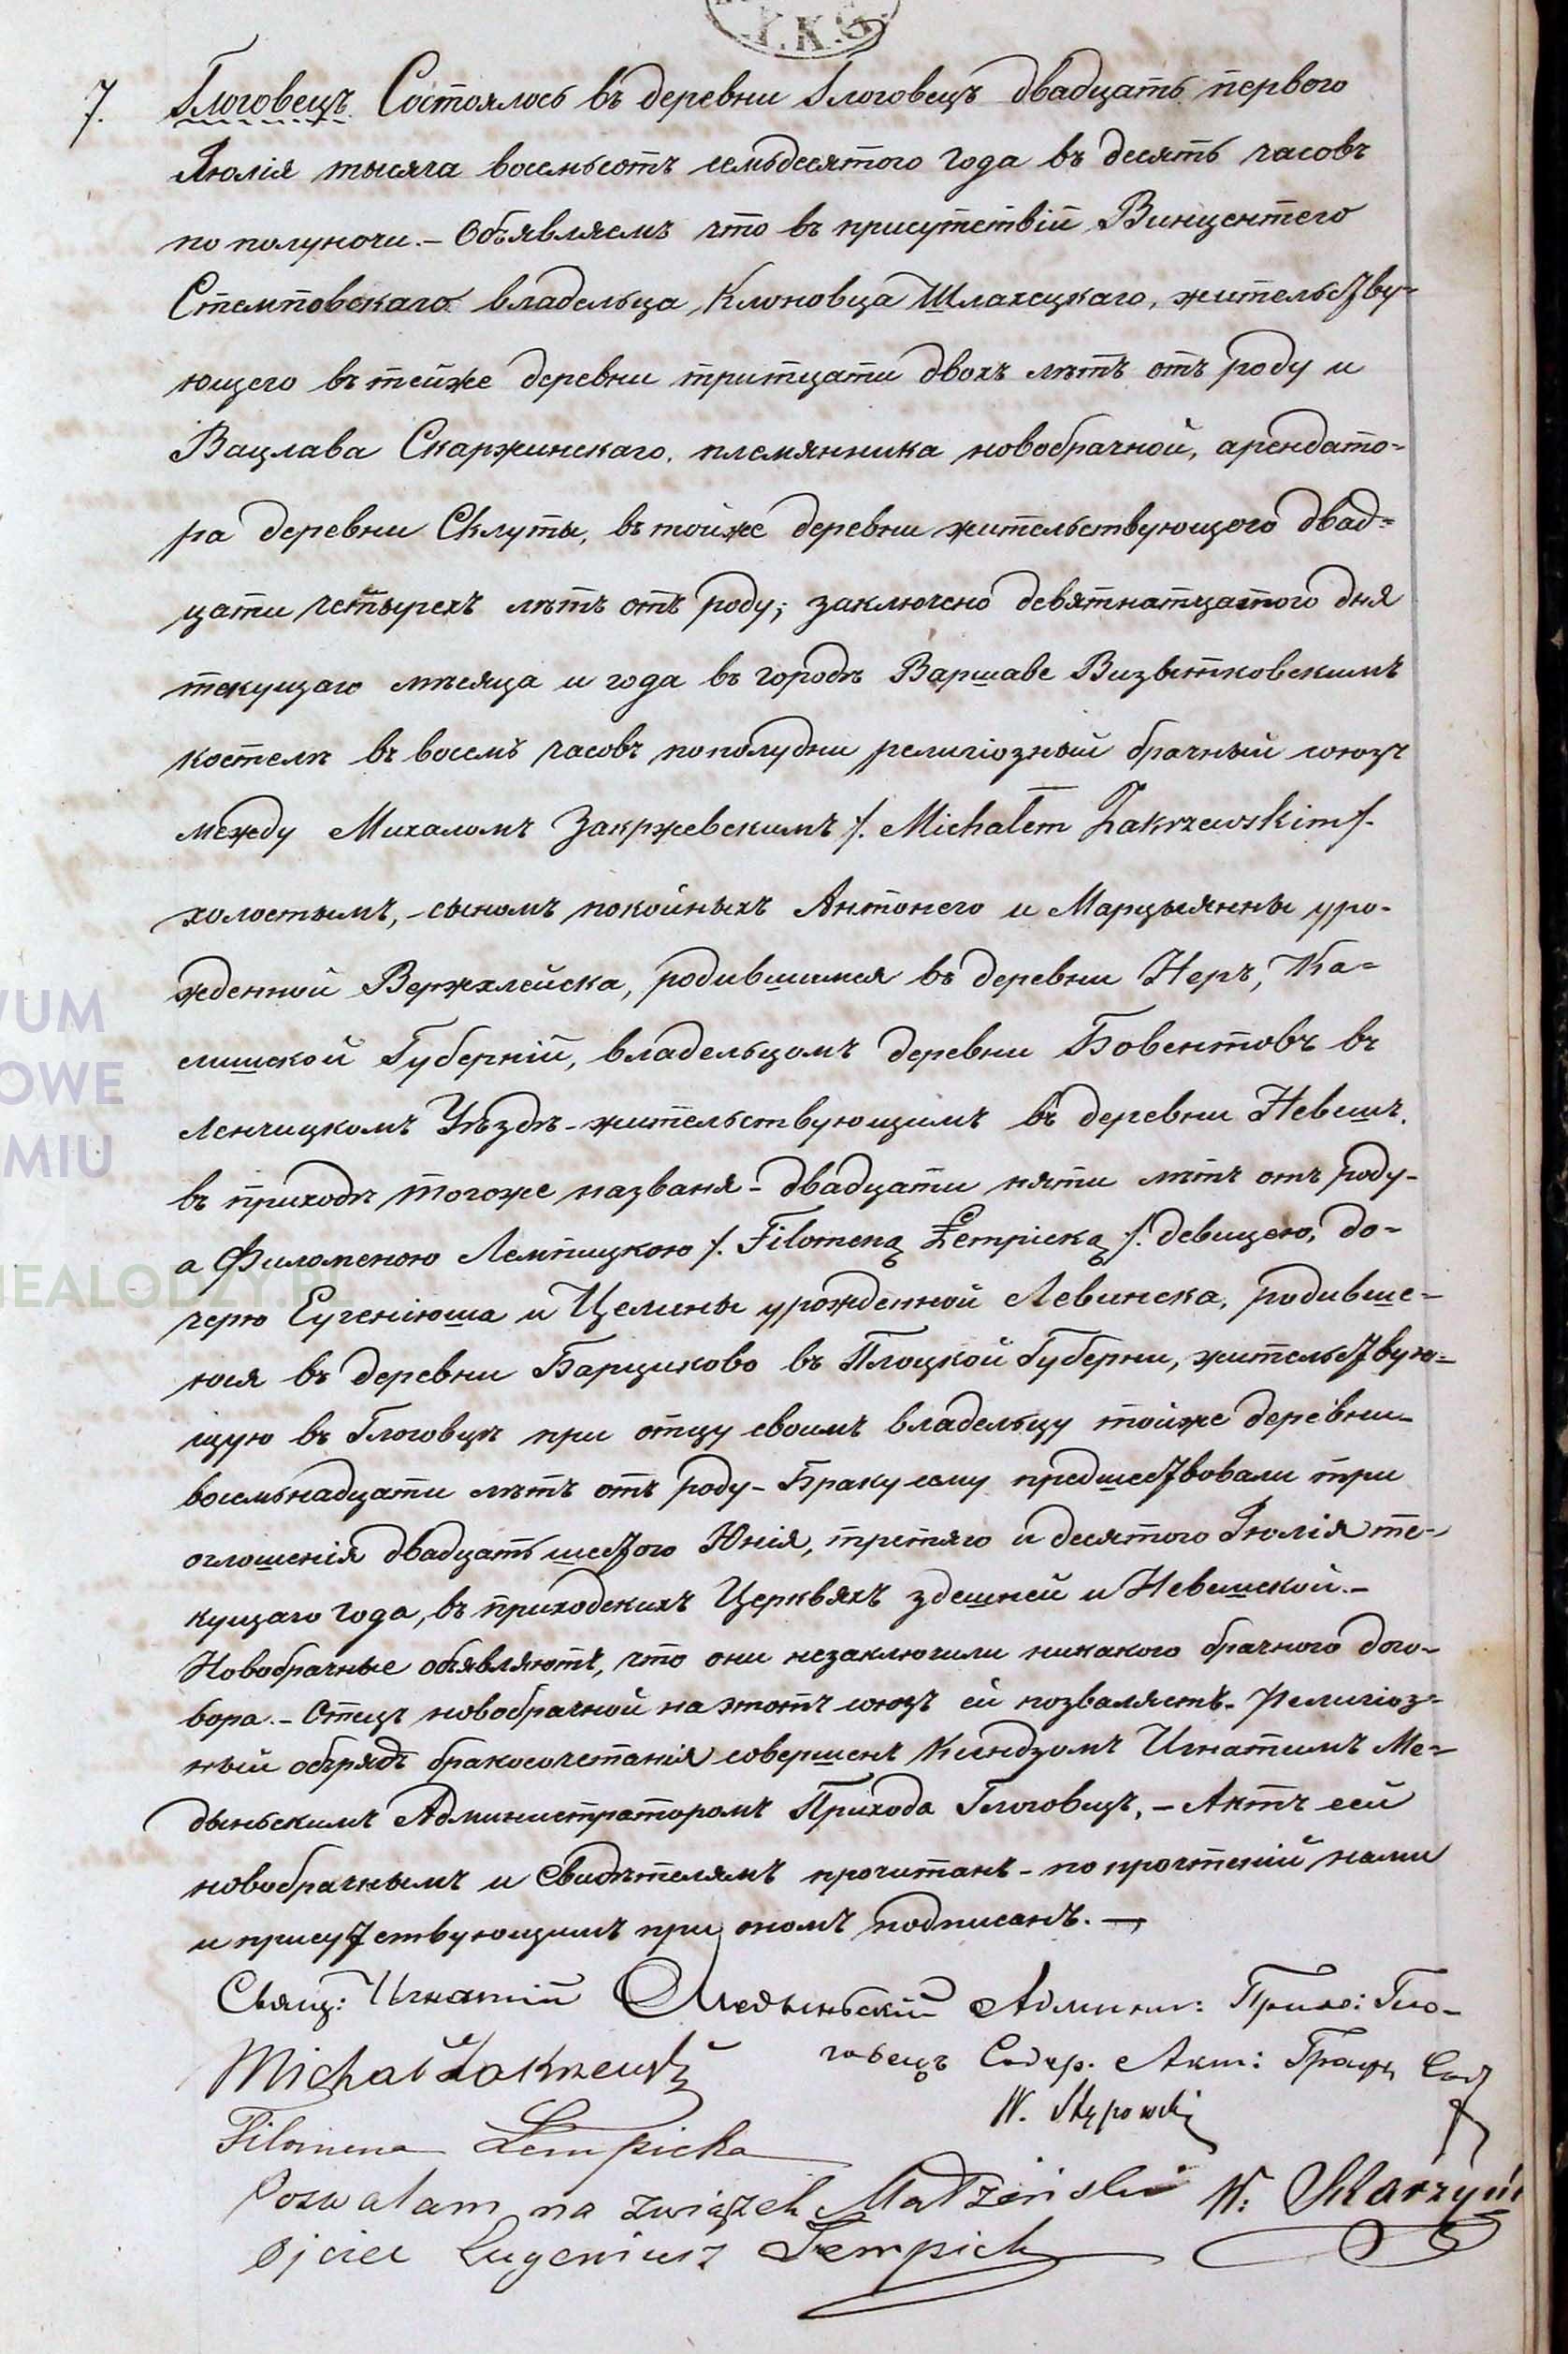 Г.К.З.
7. Глоговецъ. Состоялось въ деревни Глоговецъ двадцать первого
Июлія тысяча восемьсотъ семьдесятого года въ десять часовъ
по полуночи. – Объявляемъ что въ присутствій Винцентего
Стемповскаго владельца Клоновца Шлахецкаго, жительству-
ющего въ тейже деревни тритцати двохъ лѣтъ отъ роду и
Вацлава Скаржинскаго, племянника новобрачной, арендато-
ра деревни Склуты, въ тойже деревни жительствующого двад-
цати четырехъ лѣтъ отъ роду; заключено девятнатцатого дня
текущаго мѣсяца и года въ городѣ Варшаве Визытковскимъ
костелѣ въ восемь часовъ пополудни религіозный брачный союзъ
между Михаломъ Закржевскимъ /. Michałem Zakrzewskim /.
холостымъ, – сыномъ покойныхъ Антонего и Марцыянны уро-
жденной Вержхлейска, родившимся въ деревни Неръ, Ка-
лишской Губерній, владельцомъ деревни Бовентовъ въ
Ленчицкомъ Уѣздѣ – жительствующимъ въ деревни Невешъ,
въ приходѣ тогоже названя – двадцати пяти лѣтъ отъ роду –
а Филоменою Лемпицкою /. Filomeną Łempicką /. девицею, до-
черю Еугеніюша и Целины урожденной Левинска, родивше-
юся въ деревни Барциково въ Плоцкой Губерни, жительствую-
щую въ Глоговцѣ при отцу своимъ владельцу тойже деревни –
восемьнадцати лѣтъ отъ роду – Браку сему предшествовали три
оглошенія двадцать шестого Юнія, третяго и десятого Июлія те-
кущаго года, въ приходскихъ Церквяхъ здешней и Невешской. –
Новобрачные объявляютъ, что они незаключили никакого брачного дого-
вора. – Отецъ новобрачной на этотъ союзъ ей позваляетъ. – Религіоз-
ный обрядъ бракосочетанія совершенъ Ксиндзомъ Игнатимъ Ме-
дыньскимъ Администраторомъ Прихода Глоговецъ, – Актъ сей
новобрачнымъ и Свидѣтелямъ прочитанъ – по прочтеній нами
и присутствующимъ при ономъ подписанъ. –
Свящ: Игнатій Медыньскій Админи: Прихо: Гло-
говецъ Содер. Акт: Гражд Сост
Michał Zakrzewski
W. Stępowski
Filomena Łempicka
Pozwalam na związek Małżeński W: Skarzyńs
Ojciec Eugeniusz Łempicki
WUM
OWE
MIU
NEALODZY.PL